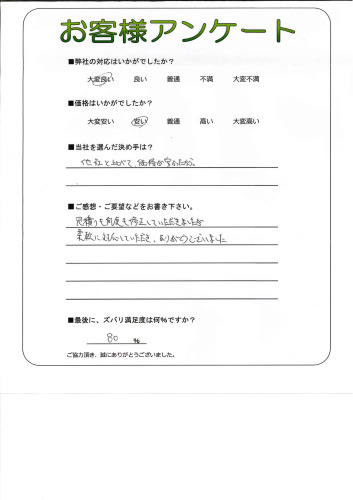 お客様アンケート
■弊社の対応はいかがでしたか?
大変良い 良い 普通 不満 大変不満
■価格はいかがでしたか?
大変安い 安い 普通 高い 大変高い
■当社を選んだ決め手は?
他社と比べて、価格が安かったから。
■ご感想・ご要望などをお書き下さい。
見積りも何度も修正していただきましたが
柔軟に対応していただき、ありがとうございました
■最後に、ズバリ満足度は何%ですか?
80 %
ご協力頂き、誠にありがとうございました。